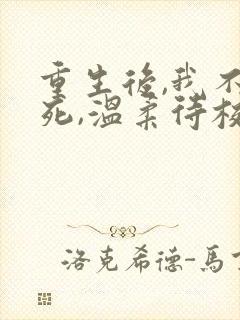 重生後,我不
死,溫柔待校
洛克希德-馬丁